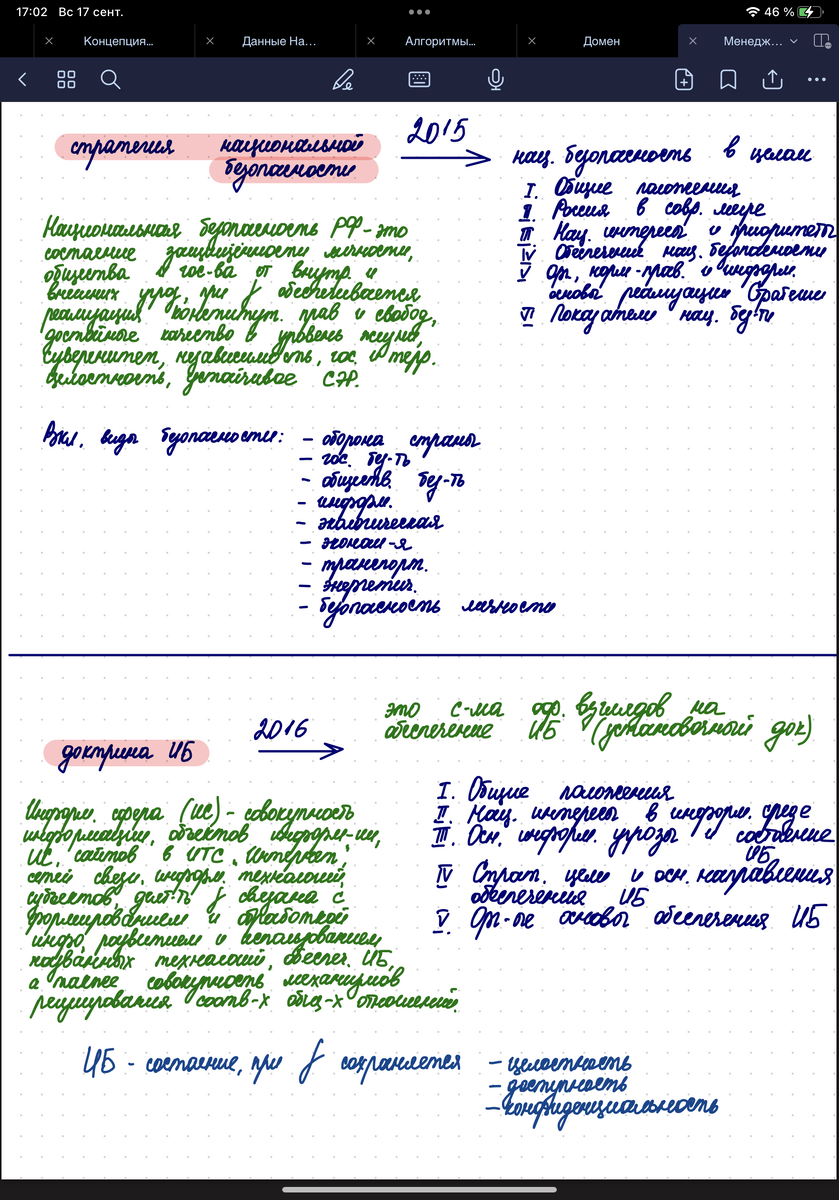 17:02 Вс 17 сент.
46 %
Концепция...
Данные На...
Алгоритмы...
Домен
Менедж...
стратегия национальной
безопасности
2015
нац. безопасность в целом
I. Общие положения
II. Россия в совр. мире
III Нац. интересы и приоритеты
IV Обеспечение нац. безопасности
V Орг., норм-прав. и информ.
основы реализации Стратегии
VI Показатели нац. без-ти
Национальная безопасность РФ - это
состояние защищённости личности,
общества и гос-ва от внутр. и
внешних угроз, при ∫ обеспечивается
реализация конституц. прав и свобод,
достойные качество и уровень жизни,
суверенитет, независимость, гос. и терр.
целостность, устойчивое СЭР.
Вкл. виды безопасности:
- оборона страны
- гос. без-ть
- обществ. без-ть
- информ.
- экологическая
- эконом-я
- транспорт.
- энергетич.
- безопасность личности
доктрина ИБ
2016
это с-ма оф. взглядов на
обеспечение ИБ (установочный док)
I. Общие положения
II. Нац. интересы в информ. среде
III. Осн. информ. угрозы и состояние
ИБ
IV Страт. цели и осн. направления
обеспечения ИБ
V. Орг-ые основы обеспечения ИБ
Информ. сфера (ИС) - совокупность
информации, объектов информ-ии,
ИС, сайтов в ИТС "Интернет",
сетей связи, информ. технологий,
субъектов, деят-ть ∫ связана с
формированием и обработкой
инфо, развитием и использованием
названных технологий, обеспеч. ИБ,
а также совокупность механизмов
регулирования соотв-х общ-х отношений.
ИБ - состояние, при ∫ сохраняется
- целостность
- доступность
- конфиденциальность